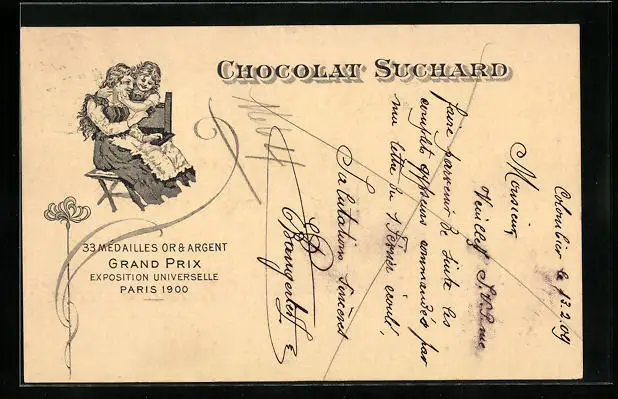 CHOCOLAT SUCHARD
33 MEDAILLES OR & ARGENT
GRAND PRIX
EXPOSITION UNIVERSELLE
PARIS 1900
Colombier le 13.2.09
Monsieur
Veuillez S.V.P. me
faire parvenir de suite les
comptes commandés par
ma lettre du 1 Février écoulé,
Salutations sincères